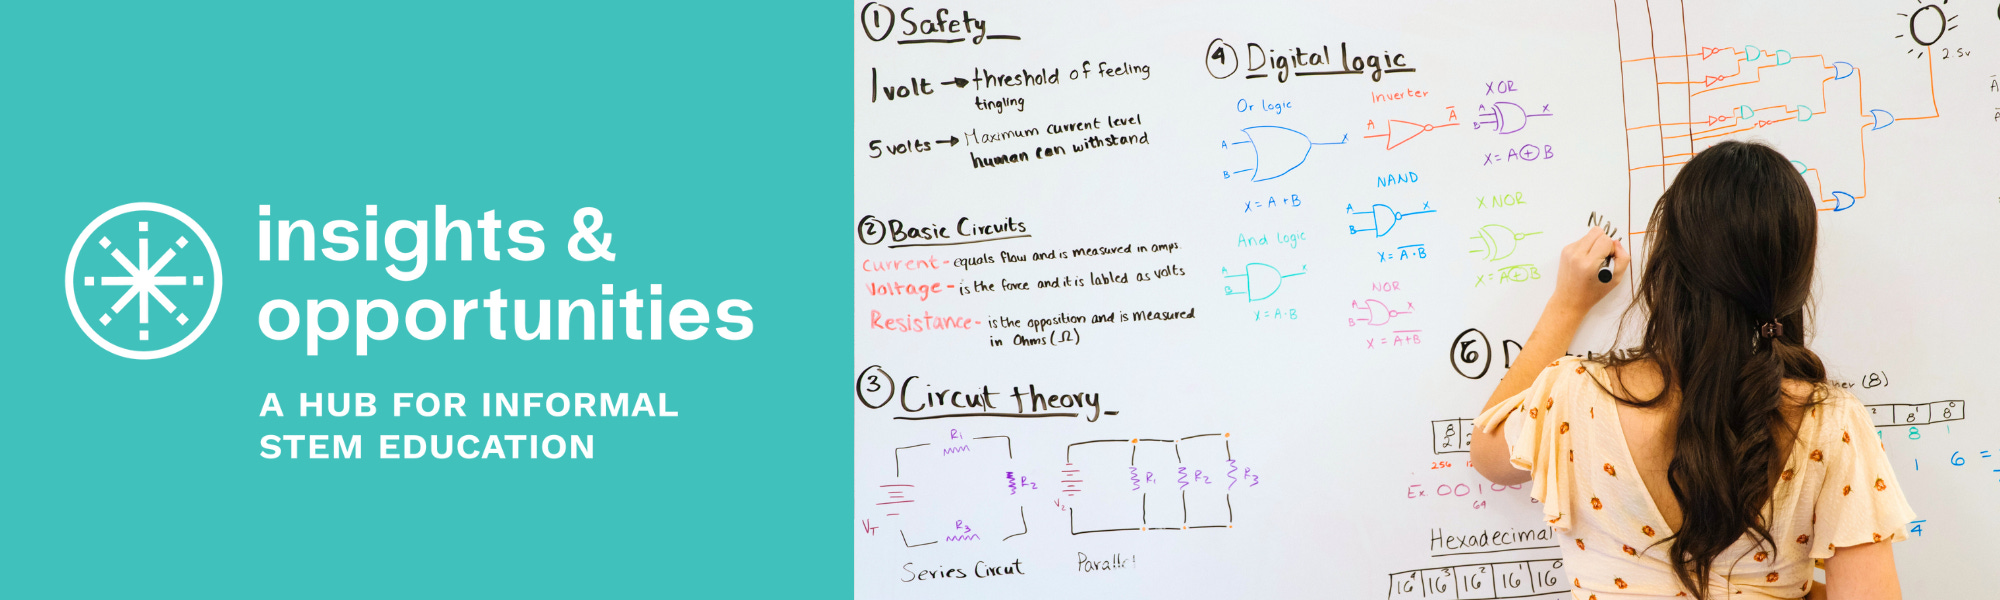 insights &
opportunities
A HUB FOR INFORMAL
STEM EDUCATION
1 Safety
1 volt → threshold of feeling
tingling
5 volts → Maximum current level
human can withstand
2 Basic Circuits
Current - equals flow and is measured in amps.
Voltage - is the force and it is labled as volts
Resistance - is the opposition and is measured
in Ohms (Ω)
3 Circuit theory
R1
R2
R3
VT
Series Circut
R1
R2
R3
V2
Parallel
4 Digital logic
Or logic
A
B
X
X = A + B
And logic
A
B
X
X = A·B
Inverter
A
A̅
NAND
A
B
X
X = A̅·̅B̅
NOR
A
B
X
X = A̅+̅B̅
XOR
A
B
X
X = A ⊕ B
X NOR
X = A̅⊕̅B̅
2.5v
5 D
(8)
8¹ 8⁰
8 1
1 6 =
256
Ex. 001
64
4
Hexadecimal
16⁴ 16³ 16² 16¹ 16⁰